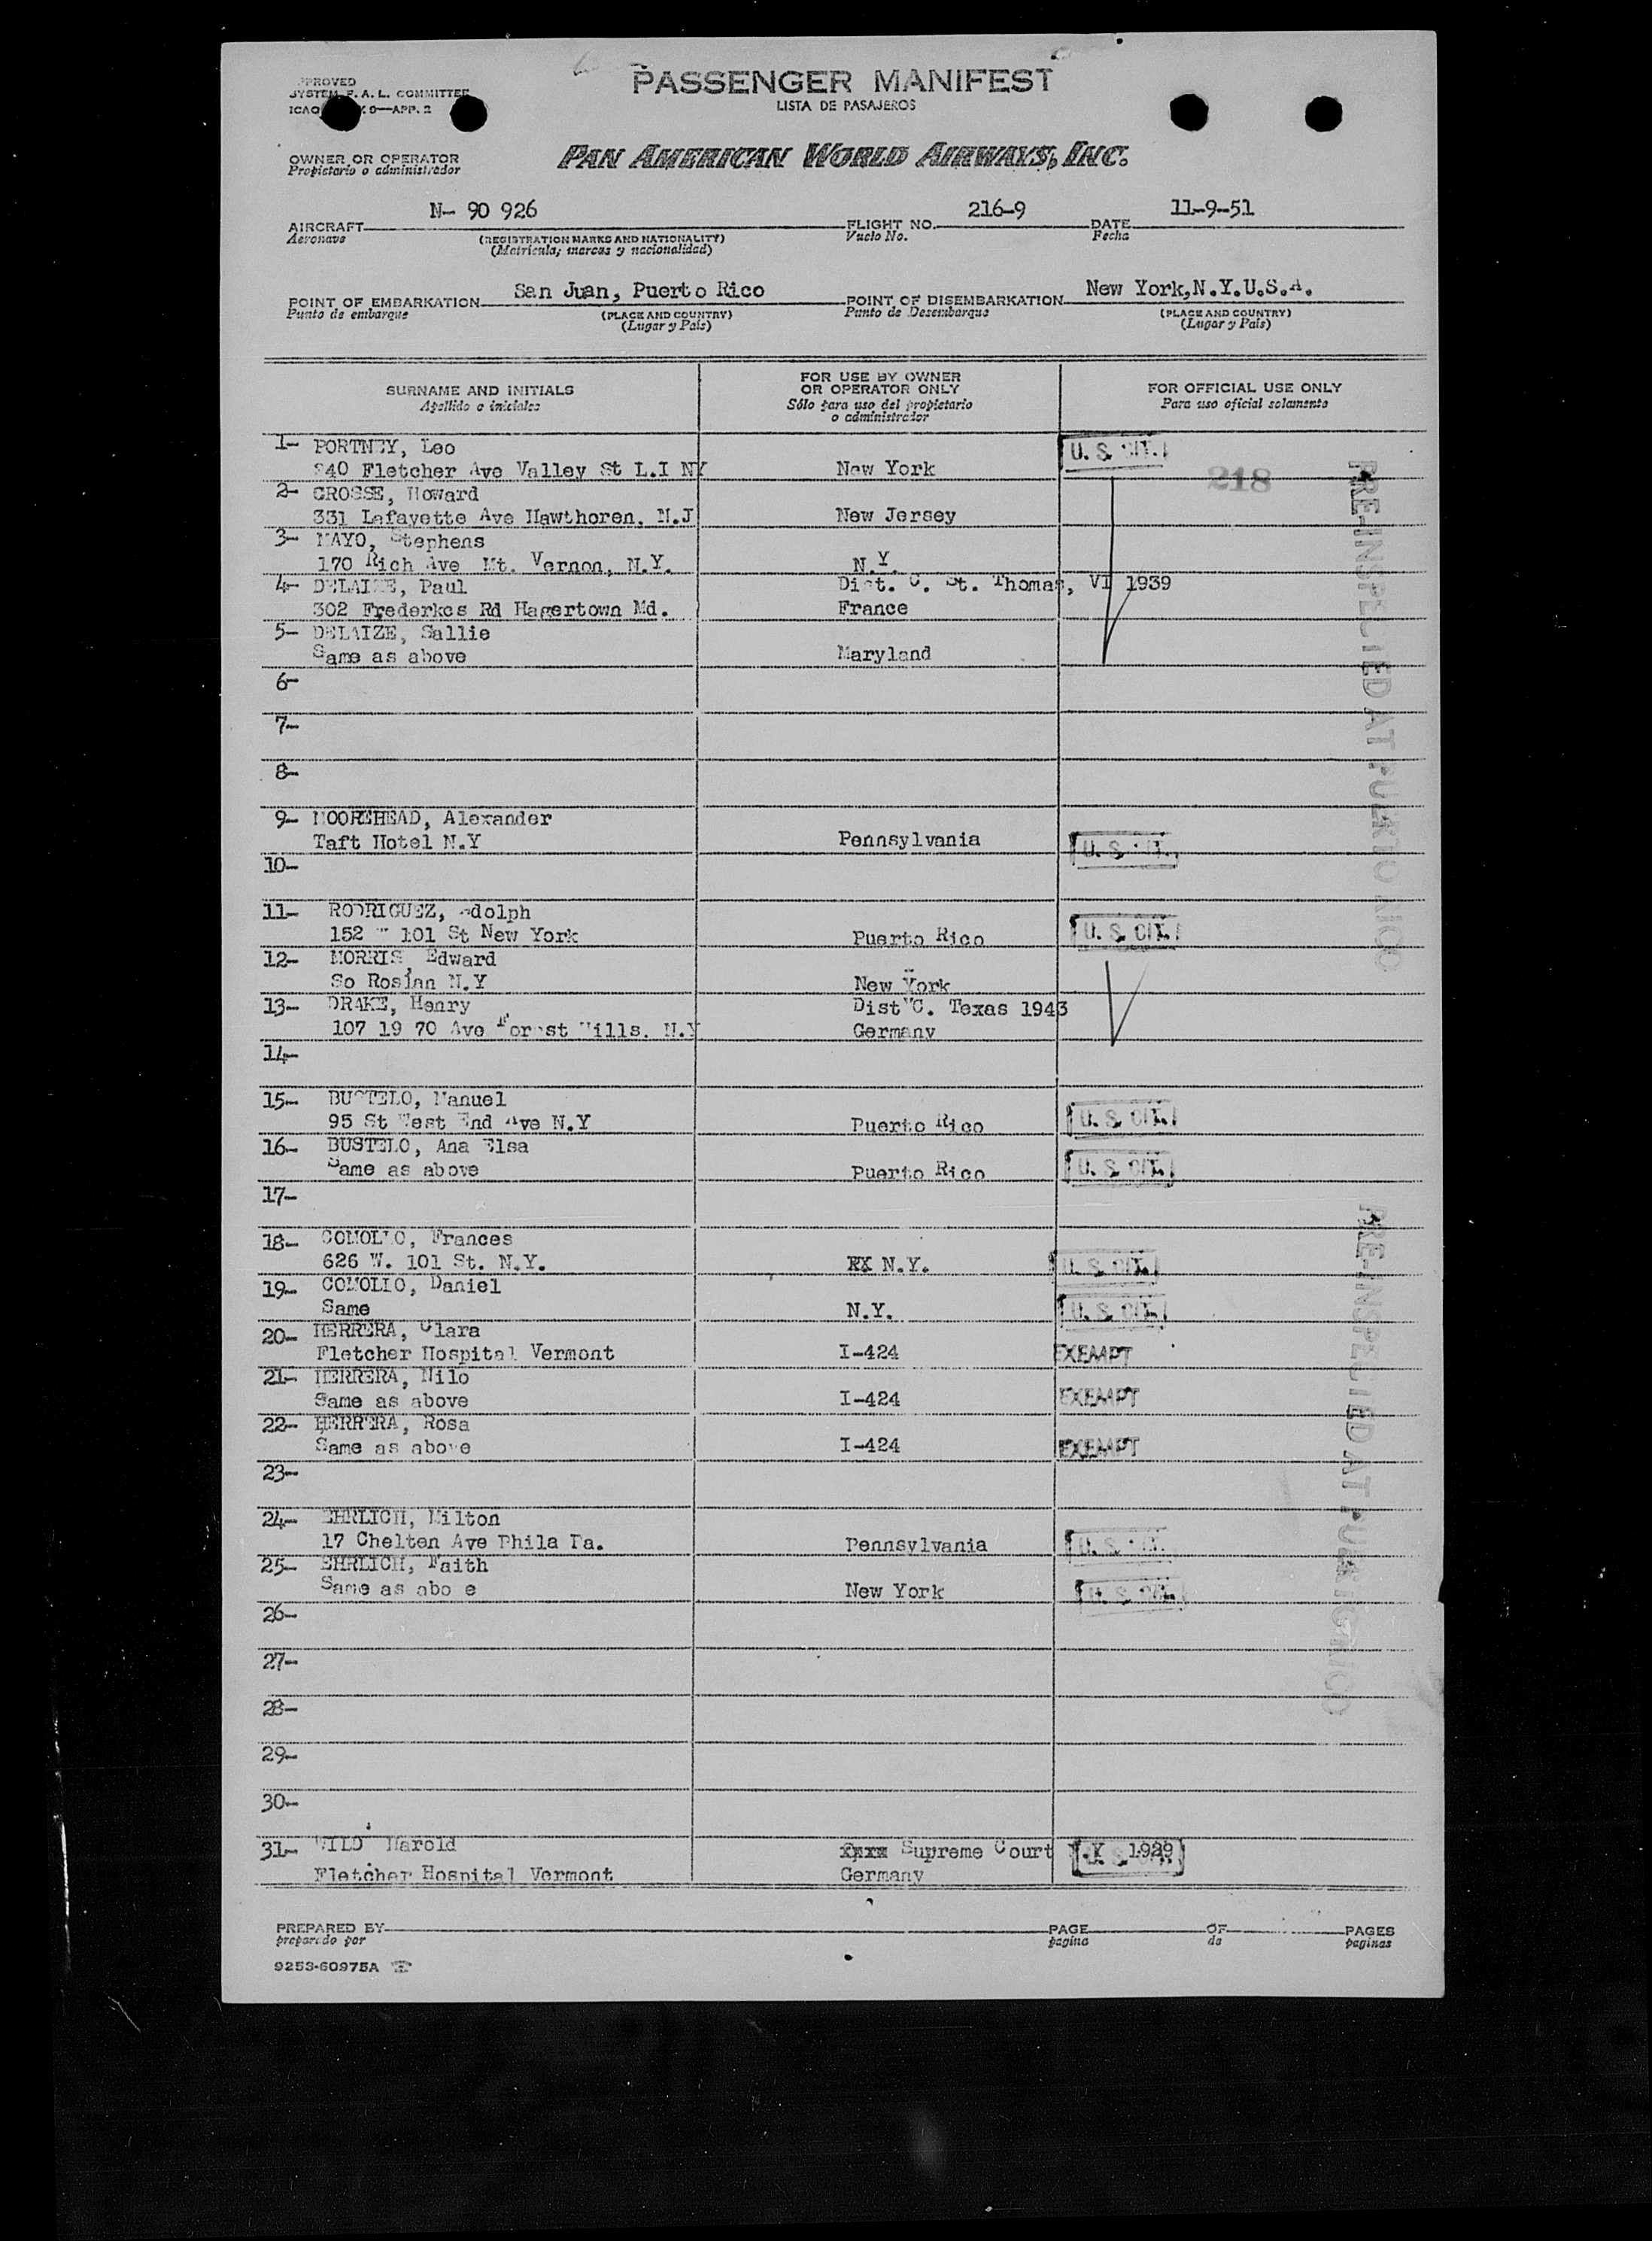 PROVED
SYSTEM F. A. L. COMMITTEE
ICAO 9—APP. 2
PASSENGER MANIFEST
LISTA DE PASAJEROS
OWNER OR OPERATOR
Propietario o administrador
PAN AMERICAN WORLD AIRWAYS, INC.
AIRCRAFT N- 90 926 FLIGHT NO. 216-9 DATE 11-9-51
Aeronave (REGISTRATION MARKS AND NATIONALITY) Vuelo No. Fecha
(Matricula; marcas y nacionalidad)
POINT OF EMBARKATION San Juan, Puerto Rico POINT OF DISEMBARKATION New York,N.Y.U.S.A.
Punto de embarque (PLACE AND COUNTRY) Punto de Desembarque (PLACE AND COUNTRY)
(Lugar y País) (Lugar y País)
SURNAME AND INITIALS FOR USE BY OWNER OR OPERATOR ONLY FOR OFFICIAL USE ONLY
Apellido o iniciales Sólo para uso del propietario o administrador Para uso oficial solamente
1- PORTNEY, Leo U. S. CIT.
840 Fletcher Ave Valley St L.I NY New York 218
2- CROSSE, Howard
331 Lafayette Ave Hawthoren, N.J New Jersey
3- MAYO, Stephens
170 Rich Ave Mt. Vernon, N.Y. N.Y.
4- DELAIZE, Paul Dist. C. St. Thomas, VI 1939
302 Frederkcs Rd Hagertown Md. France
5- DELAIZE, Sallie
Same as above Maryland
6-
7-
8-
9- MOOREHEAD, Alexander
Taft Hotel N.Y Pennsylvania U. S. CIT.
10-
11- RODRIGUEZ, Adolph
152 W 101 St New York Puerto Rico U. S. CIT.
12- MORRIS, Edward
So Roslan N.Y New York
13- DRAKE, Henry Dist C. Texas 1943
107 19 70 Ave Forest Hills. N.Y Germany
14-
15- BUSTELO, Manuel
95 St West End Ave N.Y Puerto Rico U. S. CIT.
16- BUSTELO, Ana Elsa
Same as above Puerto Rico U. S. CIT.
17-
18- COMOLIO, Frances
626 W. 101 St. N.Y. N.Y. U. S. CIT.
19- COMOLIO, Daniel
Same N.Y. U. S. CIT.
20- HERRERA, Clara
Fletcher Hospital Vermont I-424 EXEMPT
21- HERRERA, Nilo
Same as above I-424 EXEMPT
22- HERRERA, Rosa
Same as above I-424 EXEMPT
23-
24- EHRLICH, Milton
17 Chelten Ave Phila Pa. Pennsylvania U. S. CIT.
25- EHRLICH, Faith
Same as abo e New York U. S. CIT.
26-
27-
28-
29-
30-
31- WILD Harold Supreme Court N.Y 1929
Fletcher Hospital Vermont Germany U. S. CIT.
PREPARED BY PAGE OF PAGES
preparado por pagina de paginas
9253-60975A
PRE-INSPECTED AT PUERTO RICO
PRE-INSPECTED AT PUERTO RICO